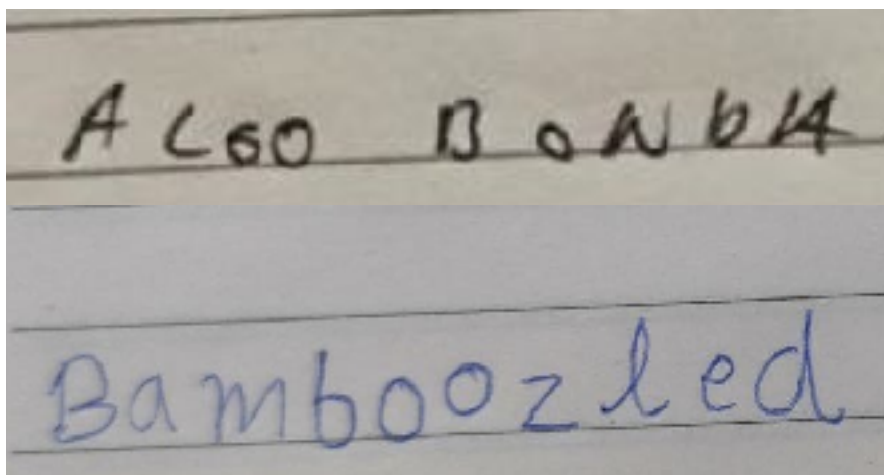 ALOO BONDA
Bamboozled